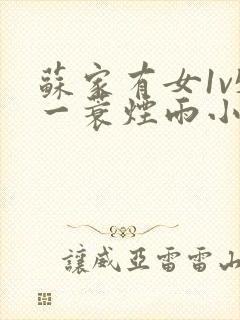 蘇家有女1v
一蓑煙雨小
讓威亞雷雷山